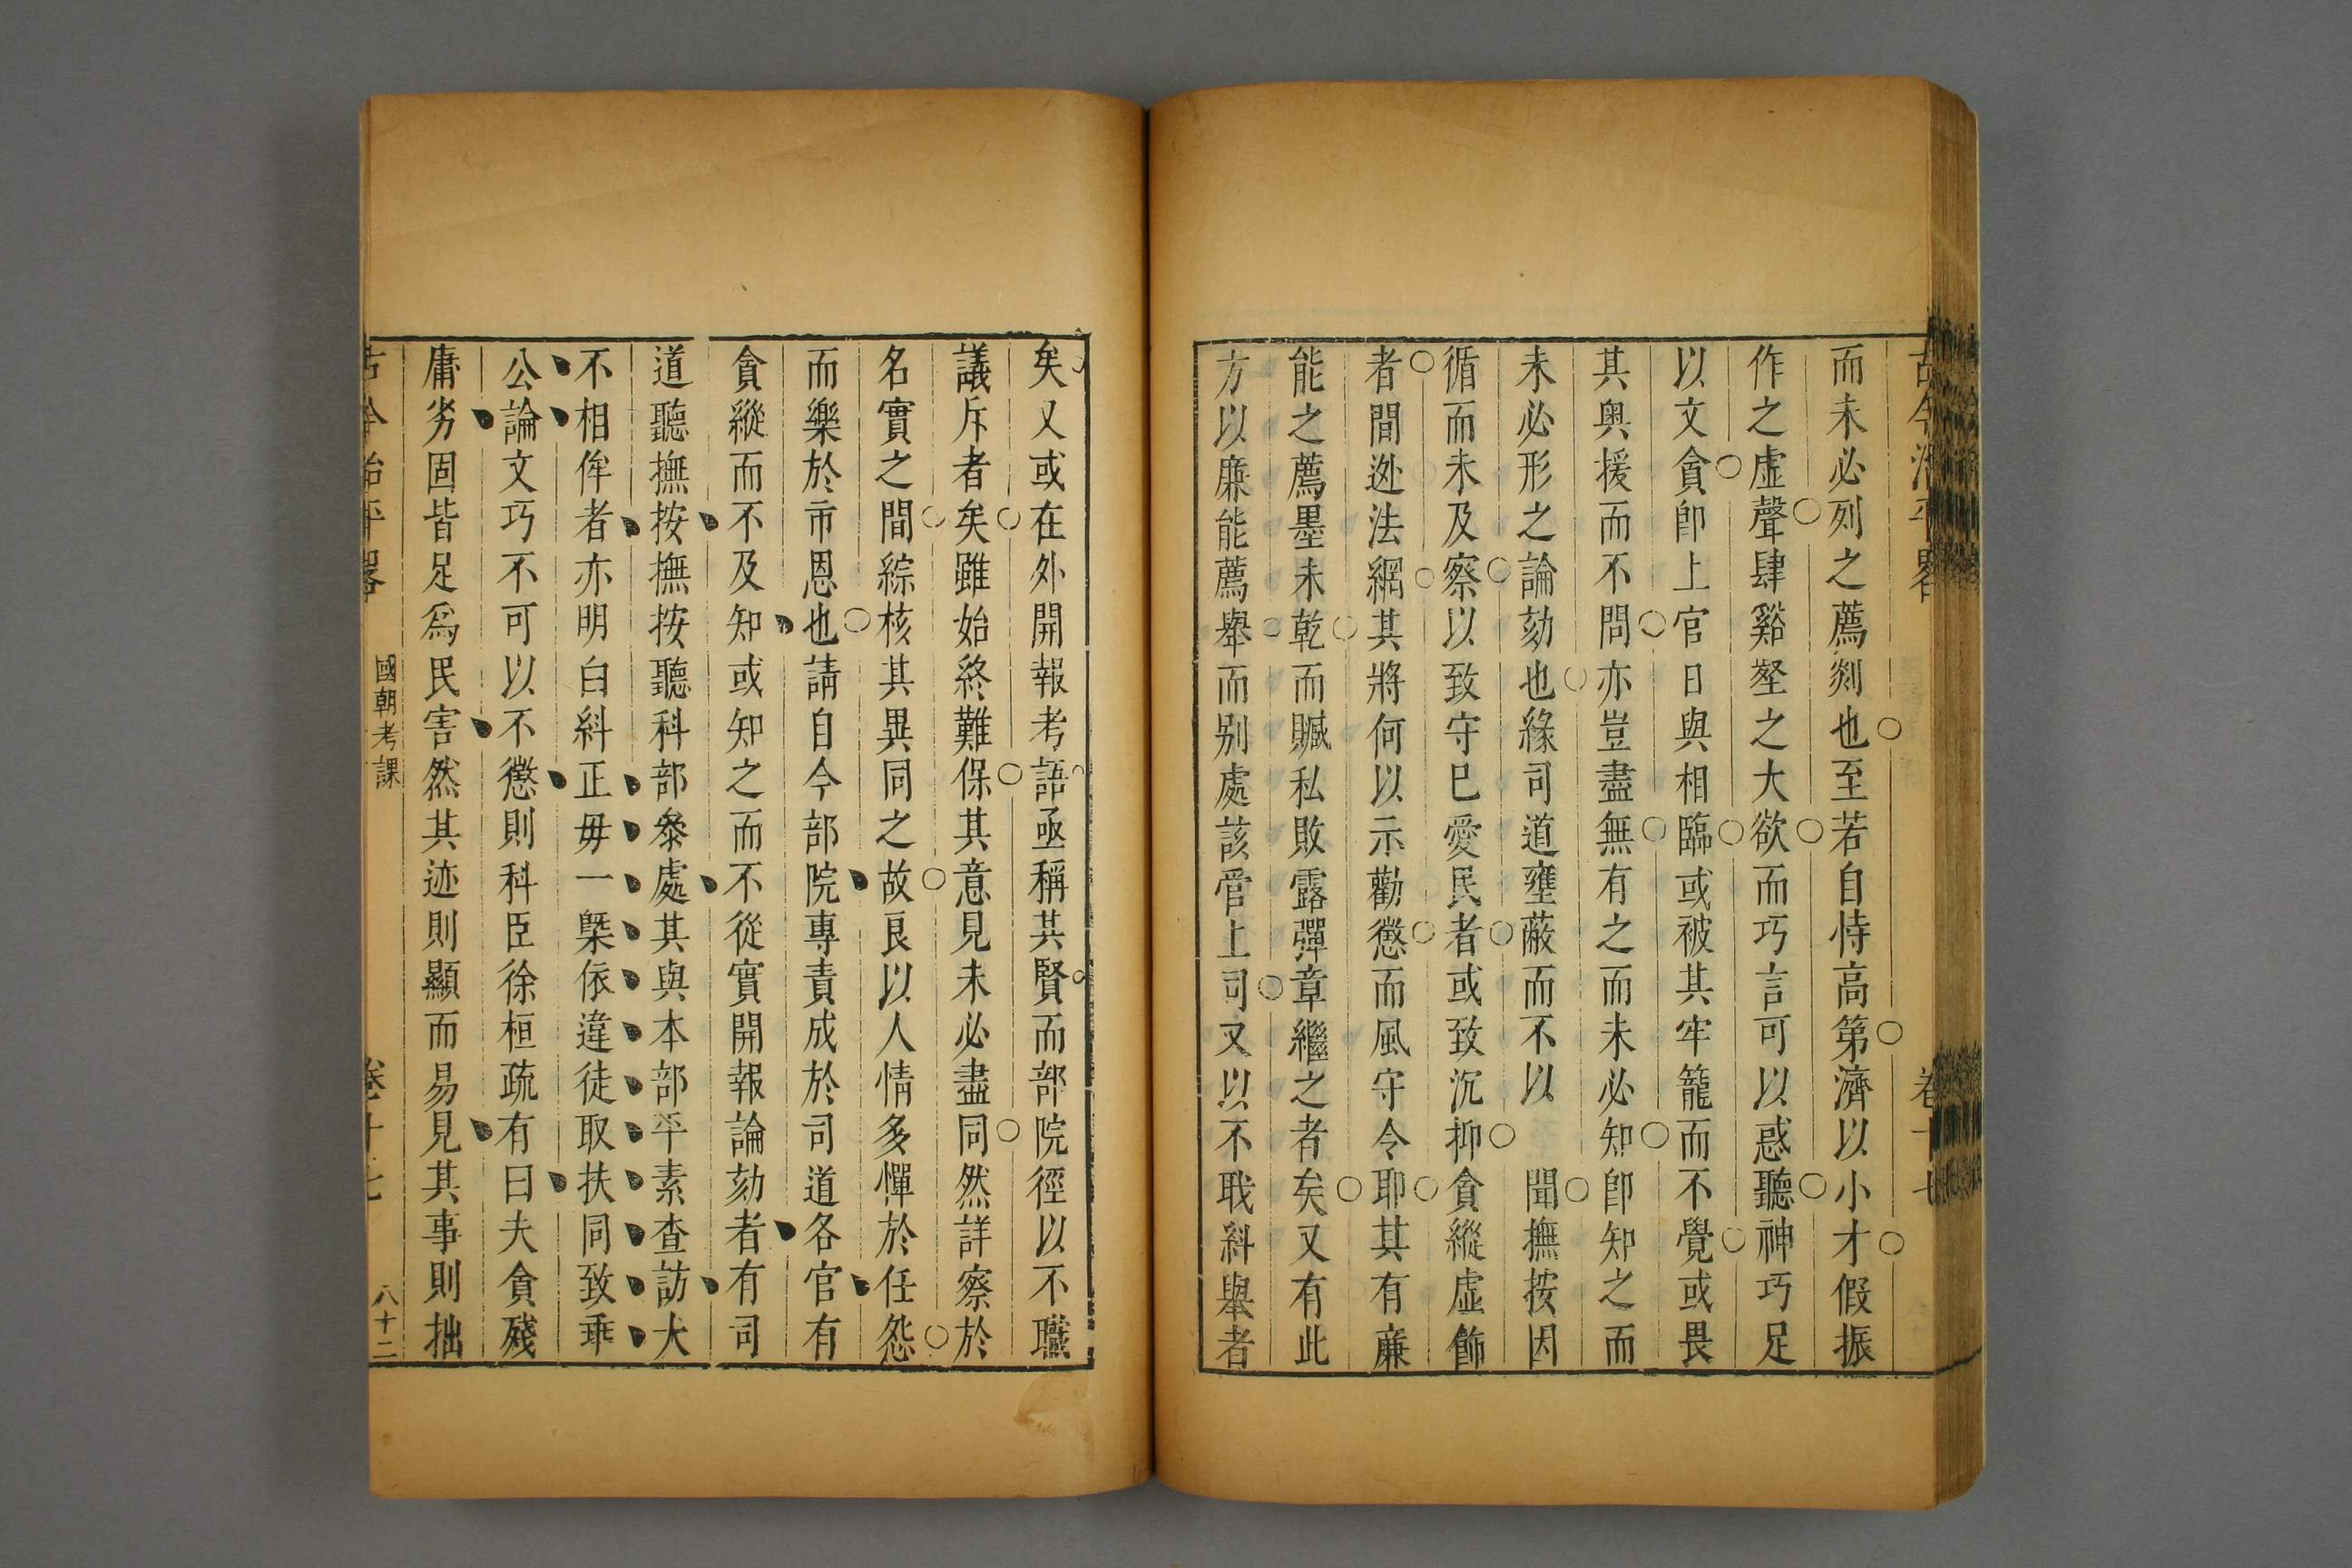 古今治平畧 卷十七
而未必列之薦剡也至若自恃高第濟以小才假振
作之虛聲肆谿壑之大欲而巧言可以惑聽神巧足
以文貪卽上官日與相臨或被其牢籠而不覺或畏
其奥援而不問亦豈盡無有之而未必知卽知之而
未必形之論劾也緣司道壅蔽而不以 聞撫按因
循而未及察以致守巳愛民者或致沉抑貪縱虛飾
者間迯法網其將何以示勸懲而風守令耶其有廉
能之薦墨未乾而贓私敗露彈章繼之者矣又有此
方以廉能薦舉而别處該管上司又以不职糾舉者
矣又或在外開報考語亟稱其賢而部院徑以不職
議斥者矣雖始終難保其意見未必盡同然詳察於
名實之間綜核其異同之故良以人情多憚於任怨
而樂於市恩也請自今部院專責成於司道各官有
貪縱而不及知或知之而不從實開報論劾者有司
道聽撫按撫按聽科部叅處其與本部平素查訪大
不相侔者亦明白糾正毋一槩依違徒取扶同致乖
公論文巧不可以不懲則科臣徐桓疏有曰夫貪殘
庸劣固皆足爲民害然其迹則顯而易見其事則拙
古今治平畧 國朝考課 卷十七 八十二